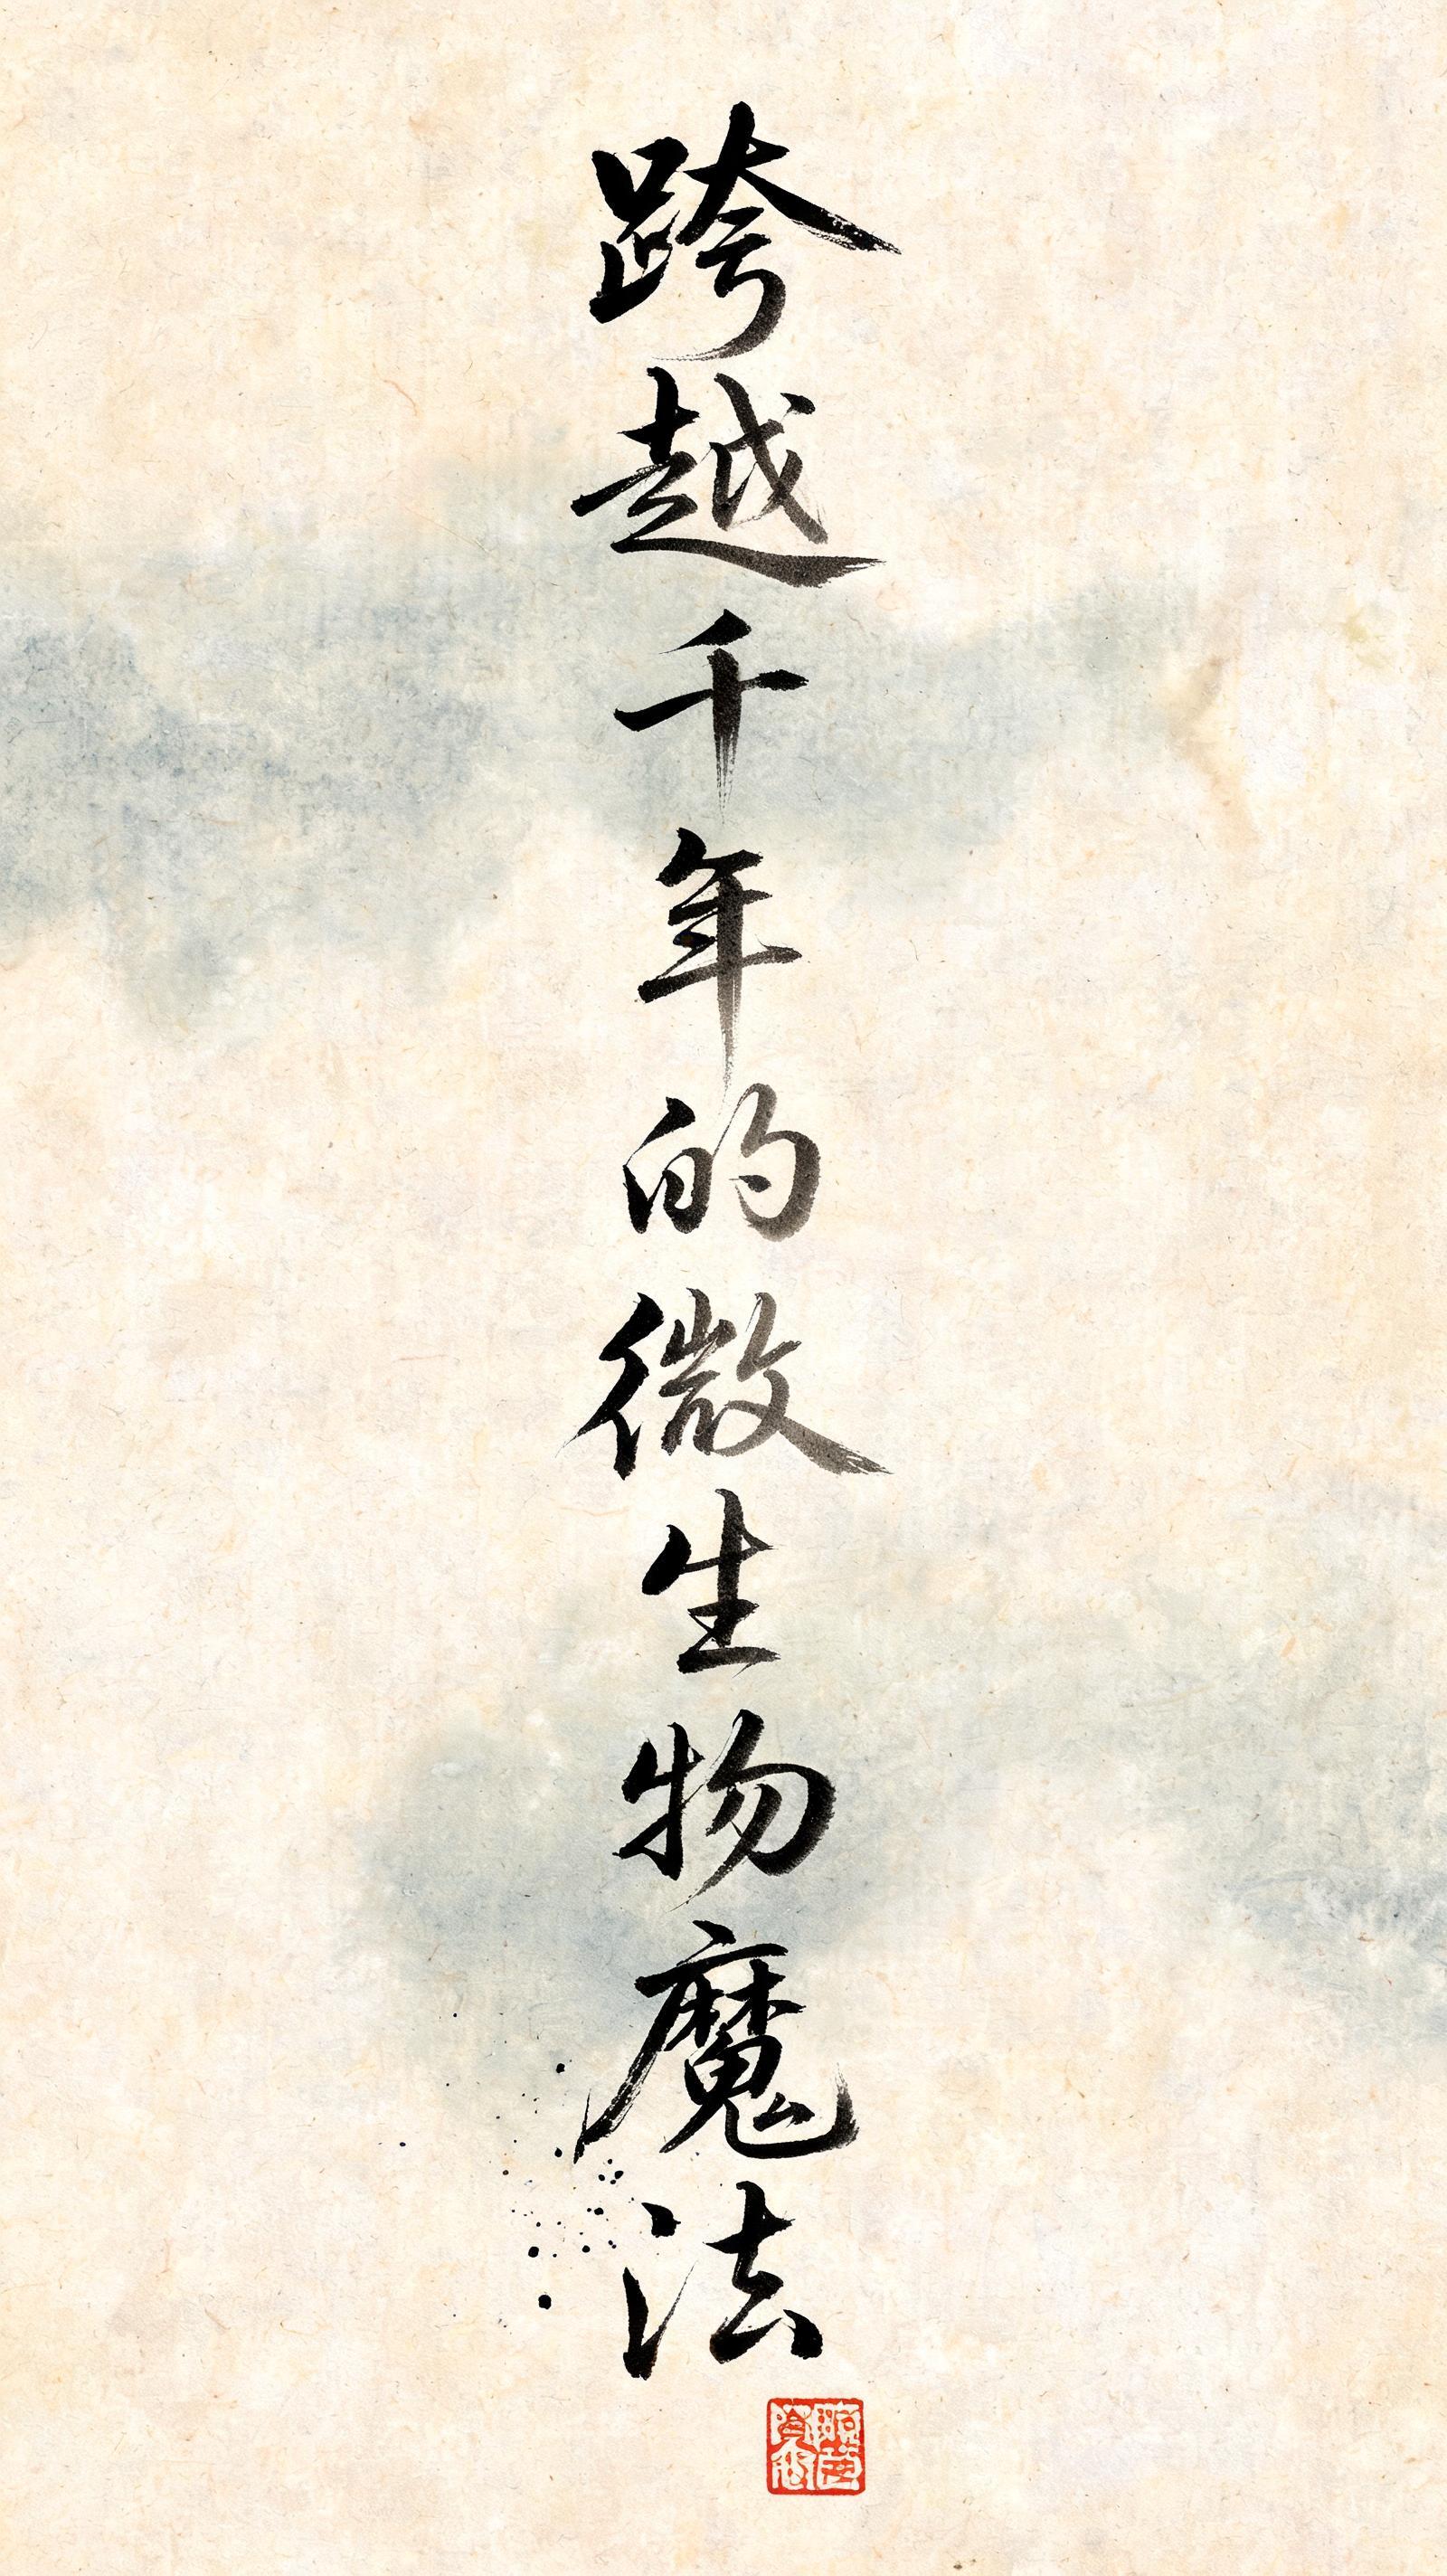 跨越千年的微生物魔法